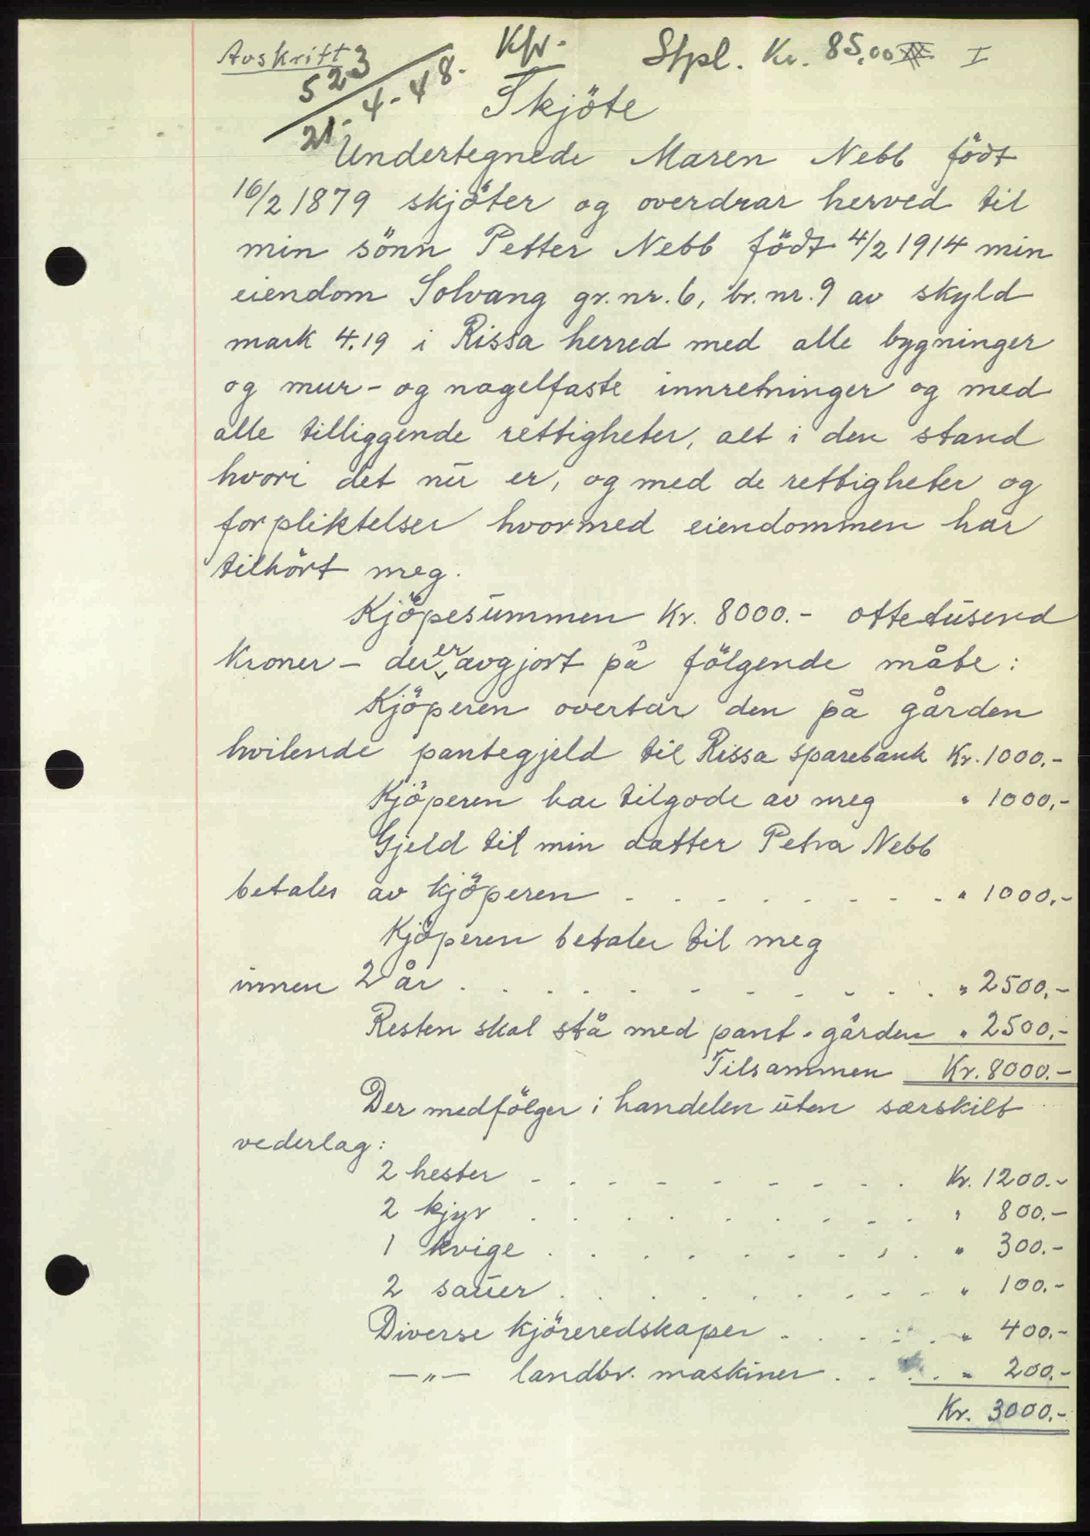 Avskrift
523
21-4-48.
Kfr.
Stpl. Kr. 85,00 I
Skjöte
Undertegnede Maren Nebb född
16/2 1879 skjöter og overdrar herved til
min sönn Petter Nebb född 4/2 1914 min
eiendom Solvang gr. nr. 6, br. nr. 9 av skyld
mark 4.19 i Rissa herred med alle bygninger
og mur- og nagelfaste innretninger og med
alle tilliggende rettigheter, alt i den stand
hvori det nu er, og med de rettigheter og
forpliktelser hvormed eiendommen har
tilhört meg.
Kjöpesummen Kr. 8000.- ottetusend
Kroner - der er avgjort på fölgende måte:
Kjöperen overtar den på gården
hvilende pantegjeld til Rissa sparebank Kr. 1000.-
Kjöperen har tilgode av meg " 1000,-
Gjeld til min datter Petra Nebb
betales av kjöperen - - - - - - - - " 1000,-
Kjöperen betaler til meg
innen 2 år . . . . - - - - - - . " 2500,-
Resten skal stå med pant i gården " 2500,-
Tilsammen Kr. 8000.-
Der medfölger i handelen uten særskilt
vederlag:
2 hester - . . - - - - - . Kr. 1200.-
2 kjyr . . . . . . . . . " 800.-
1 kvige . . . . . . . . . " 300.-
2 sauer . . . . . . . - - - " 100,-
Diverse kjöreredskaper - . . . . " 400,-
-"- landbr. maskiner . . . . " 200,-
Kr. 3000,-